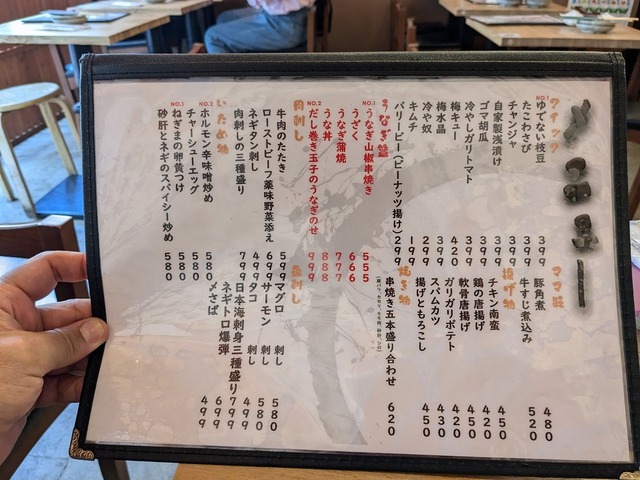 クイック
NO.1
ゆでない枝豆 399
たこわさび 399
チャンジャ 399
自家製浅漬け 399
ゴマ胡瓜 399
冷やしガリトマト 399
梅キュー 420
梅水晶 399
冷や奴 299
キムチ 199
バリービー(ピーナッツ揚げ) 299
うなぎ
NO.1
うなぎ山椒串焼き 555
うざく 666
うなぎ蒲焼 777
うな丼 888
NO.2
だし巻き玉子のうなぎのせ 999
肉刺し
牛肉のたたき 599
ローストビーフ薬味野菜添え 699
ネギタン刺し 499
肉刺しの三種盛り 799
いため物
NO.2
ホルモン辛味噌炒め 580
チャーシューエッグ 580
NO.1
ねぎまの卵黄つけ 580
砂肝とネギのスパイシー炒め 580
ママ味
豚角煮 480
牛すじ煮込み 520
揚げ物
チキン南蛮 450
鶏の唐揚げ 420
軟骨唐揚げ 450
ガリガリポテト 420
スパムカツ 430
揚げともろこし 450
焼き物
串焼き五本盛り合わせ 620
魚刺し
マグロ 刺し 580
サーモン 刺し 580
タコ 刺し 499
日本海刺身三種盛り 799
ネギトロ爆弾 699
〆さば 499